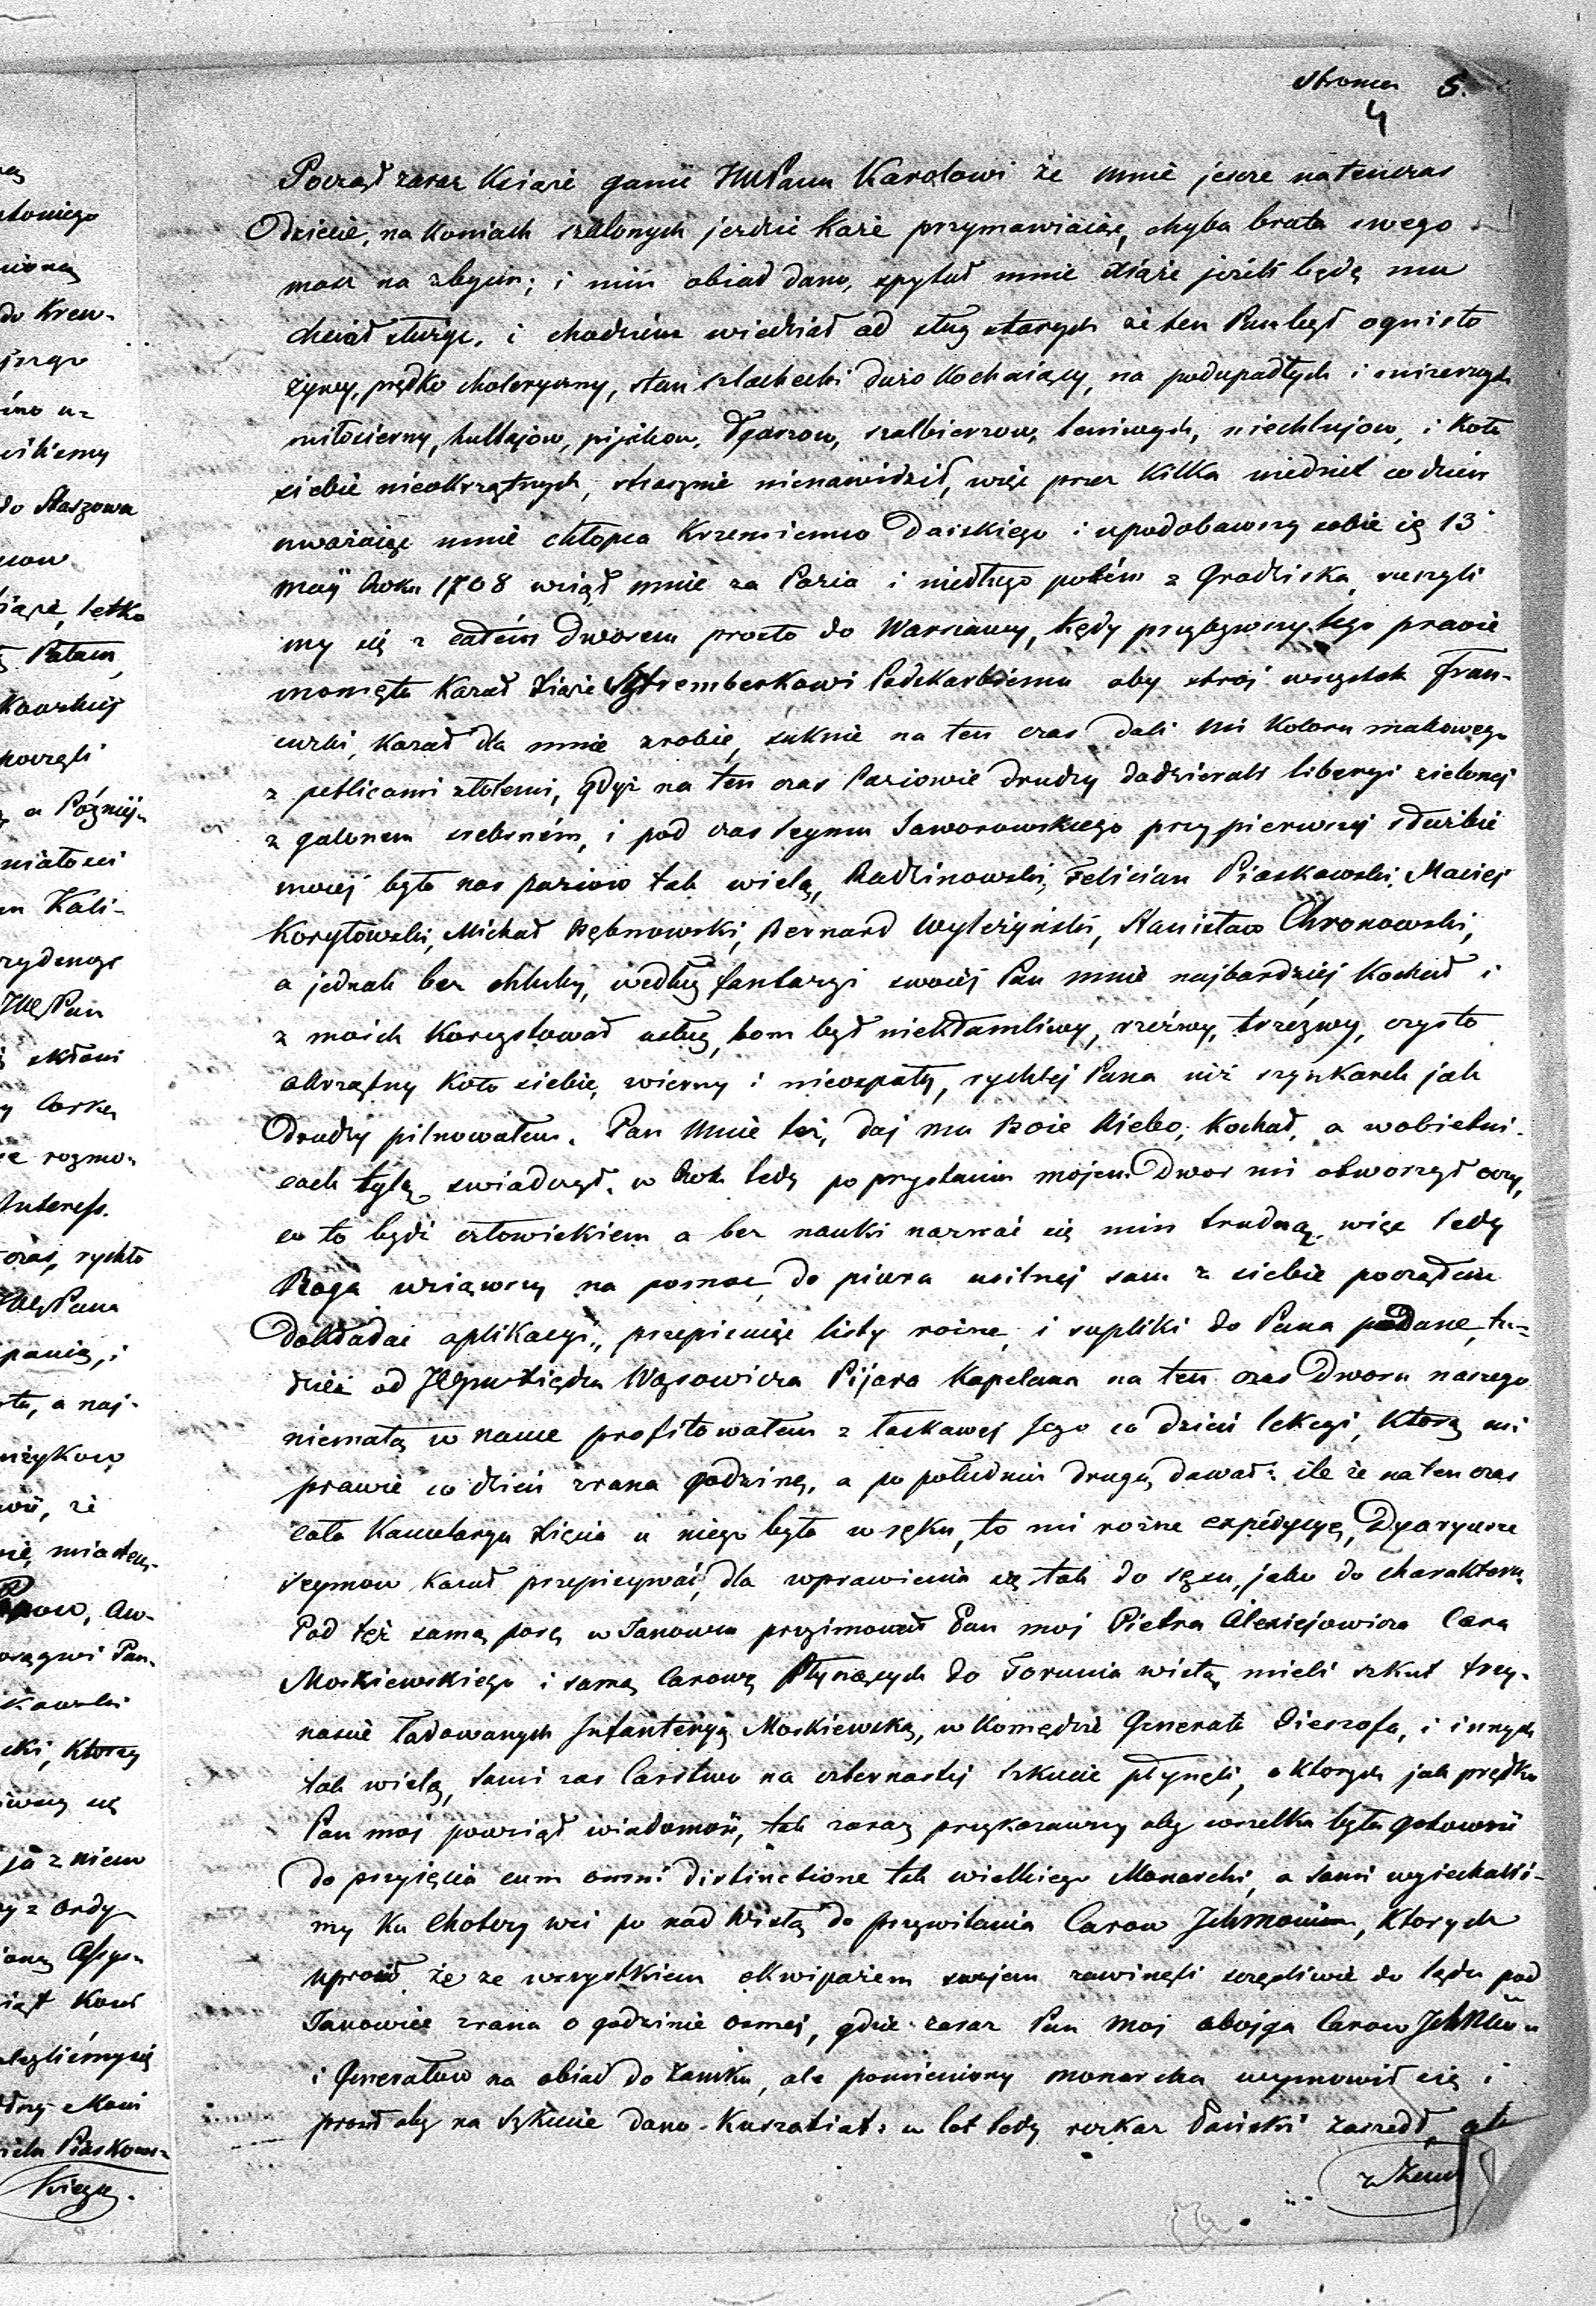 strona 5.
4
Począł zaraz Książe ganić JMPanu Karolowi że mnie jescze natenczas
Dziecie, na koniach szalonych jezdzić każe przymawiaiąc, chyba brata swego
masz na zbyciu; i nim obiad dano, spytał mnie Xiąże jeżeli będę mu
chciał służyc, i chodziem wiedział od sług starych że ten Pan był ognisto
żywy, prędko choleryczny, stan szlachecki dużo kochaiący, na podupadłych i mizernych
miłosierny, hultajow, pijakow, łgarzow, szalbierzow, leniwych, niechlujow, i koło
siebie nieokrzątnych, strasznie nienawidził, więc przez kilka niedziel co dzień
uważaiąc mnie chłopca krzemienno Dziskiego i upodobawszy sobie ię 13
Maij Roku 1708 wziął mnie za Pazia i niedługo potém z Grodziska, ruszyli
my się z całém Dworem prosto do Warszawy, kędy przybywszy tego prawie
momętu kazał Xiąże Sztremberkowi Podskarbiemu aby strój wszystek Fran-
cuzki, kazał dla mnie zrobić, suknie na ten czas dali mi koloru makowego
z petlicami złotemi, gdyż na ten czas Paziowie drudzy dodzierali liberyi zielonej
z galonem srebrném, i pod czas Seymu Jaworowskiego przy pierwszej służbie
mojej było nas paziow tak wielą, Radzinowski, Felician Piaskowski, Maciej
Korytowski, Michał Dębnowski, Bernard Wyleżyński, Stanisław Chronowski,
a jednak bez chluby, według fantazyi swoiej Pan mnie najbardziej kochał i
z moich korzystował usług, bom był niekłamliwy, rzeźwy, trzeźwy, czysto
okrzątny koło siebie, wierny i nieospały, rychlej Pana niż szynkarek jak
Drudzy pilnowałem. Pan mnie też, daj mu Boże Niebo, kochał, a wobietni-
cach tylą swiadczył. w Rok tedy po przystaniu mojem Dwor mi otworzył oczy,
co to bydź człowiekiem a bez nauki nazwać się nim trudną, więc tedy
Boga wziąwszy na pomoc, do piura usilnej sam z siebie począłem
Dokładać aplikacyi, przepisuiąc listy rożne, i supliki do Pana podane, tu-
dzież od Jegmc Xiędza Wąsowicza Pijara Kapelana na ten czas Dworu naszego
niemałą w nauce profitowałem z łaskawej Jego co dzień lekcyi, ktorą mi
prawie co dzień zrana godzinę, a po południu drugą dawał: ile że na ten czas
cała Kancelarya Xięcia u niego była w ręku, to mi rożne expedycye, Dyaryusze
Seymow kazał przepisywać, dla wprawienia się tak do sęsu, jako do charakteru.
Pod też samą porę w Janowcu przyimował Pan moj Pietra Alexiejowicza Cara
Moskiewskiego i samą Carową płynących do Torunia wisłą, mieli szkut trzy-
nascie ładowanych Infanteryą Moskiewską, w komędzie Generała Dieszofa, i innych
tak wielą, sami zas Carstwo na czternastej szkucie płynęli, o ktorych jak prędko
Pan moj powziął wiadomość, tak zaraz przykazawszy aby wszelka była gotowość
do przyięcia cum omni distinctione tak wielkiego Monarchi, a sami wyiechaliś-
my ku Chotczy wsi po nad Wisłą do przywitania Carow Jchmciow, ktorych
uprosił że ze wszystkiem ekwipażem swojem zawinęli szczęśliwie do lądu pod
Janowiec zrana o godzinie osmej, gdzie zaraz Pan moj obojga Carow JchMciow
i Generałow na obiad do Zamku, ale pomieniony monarcha wymowił się i
prosił aby na Szkucie dano. Kuszatiat: w lot tedy rozkaz Pański zaszedł, ab
z Zam